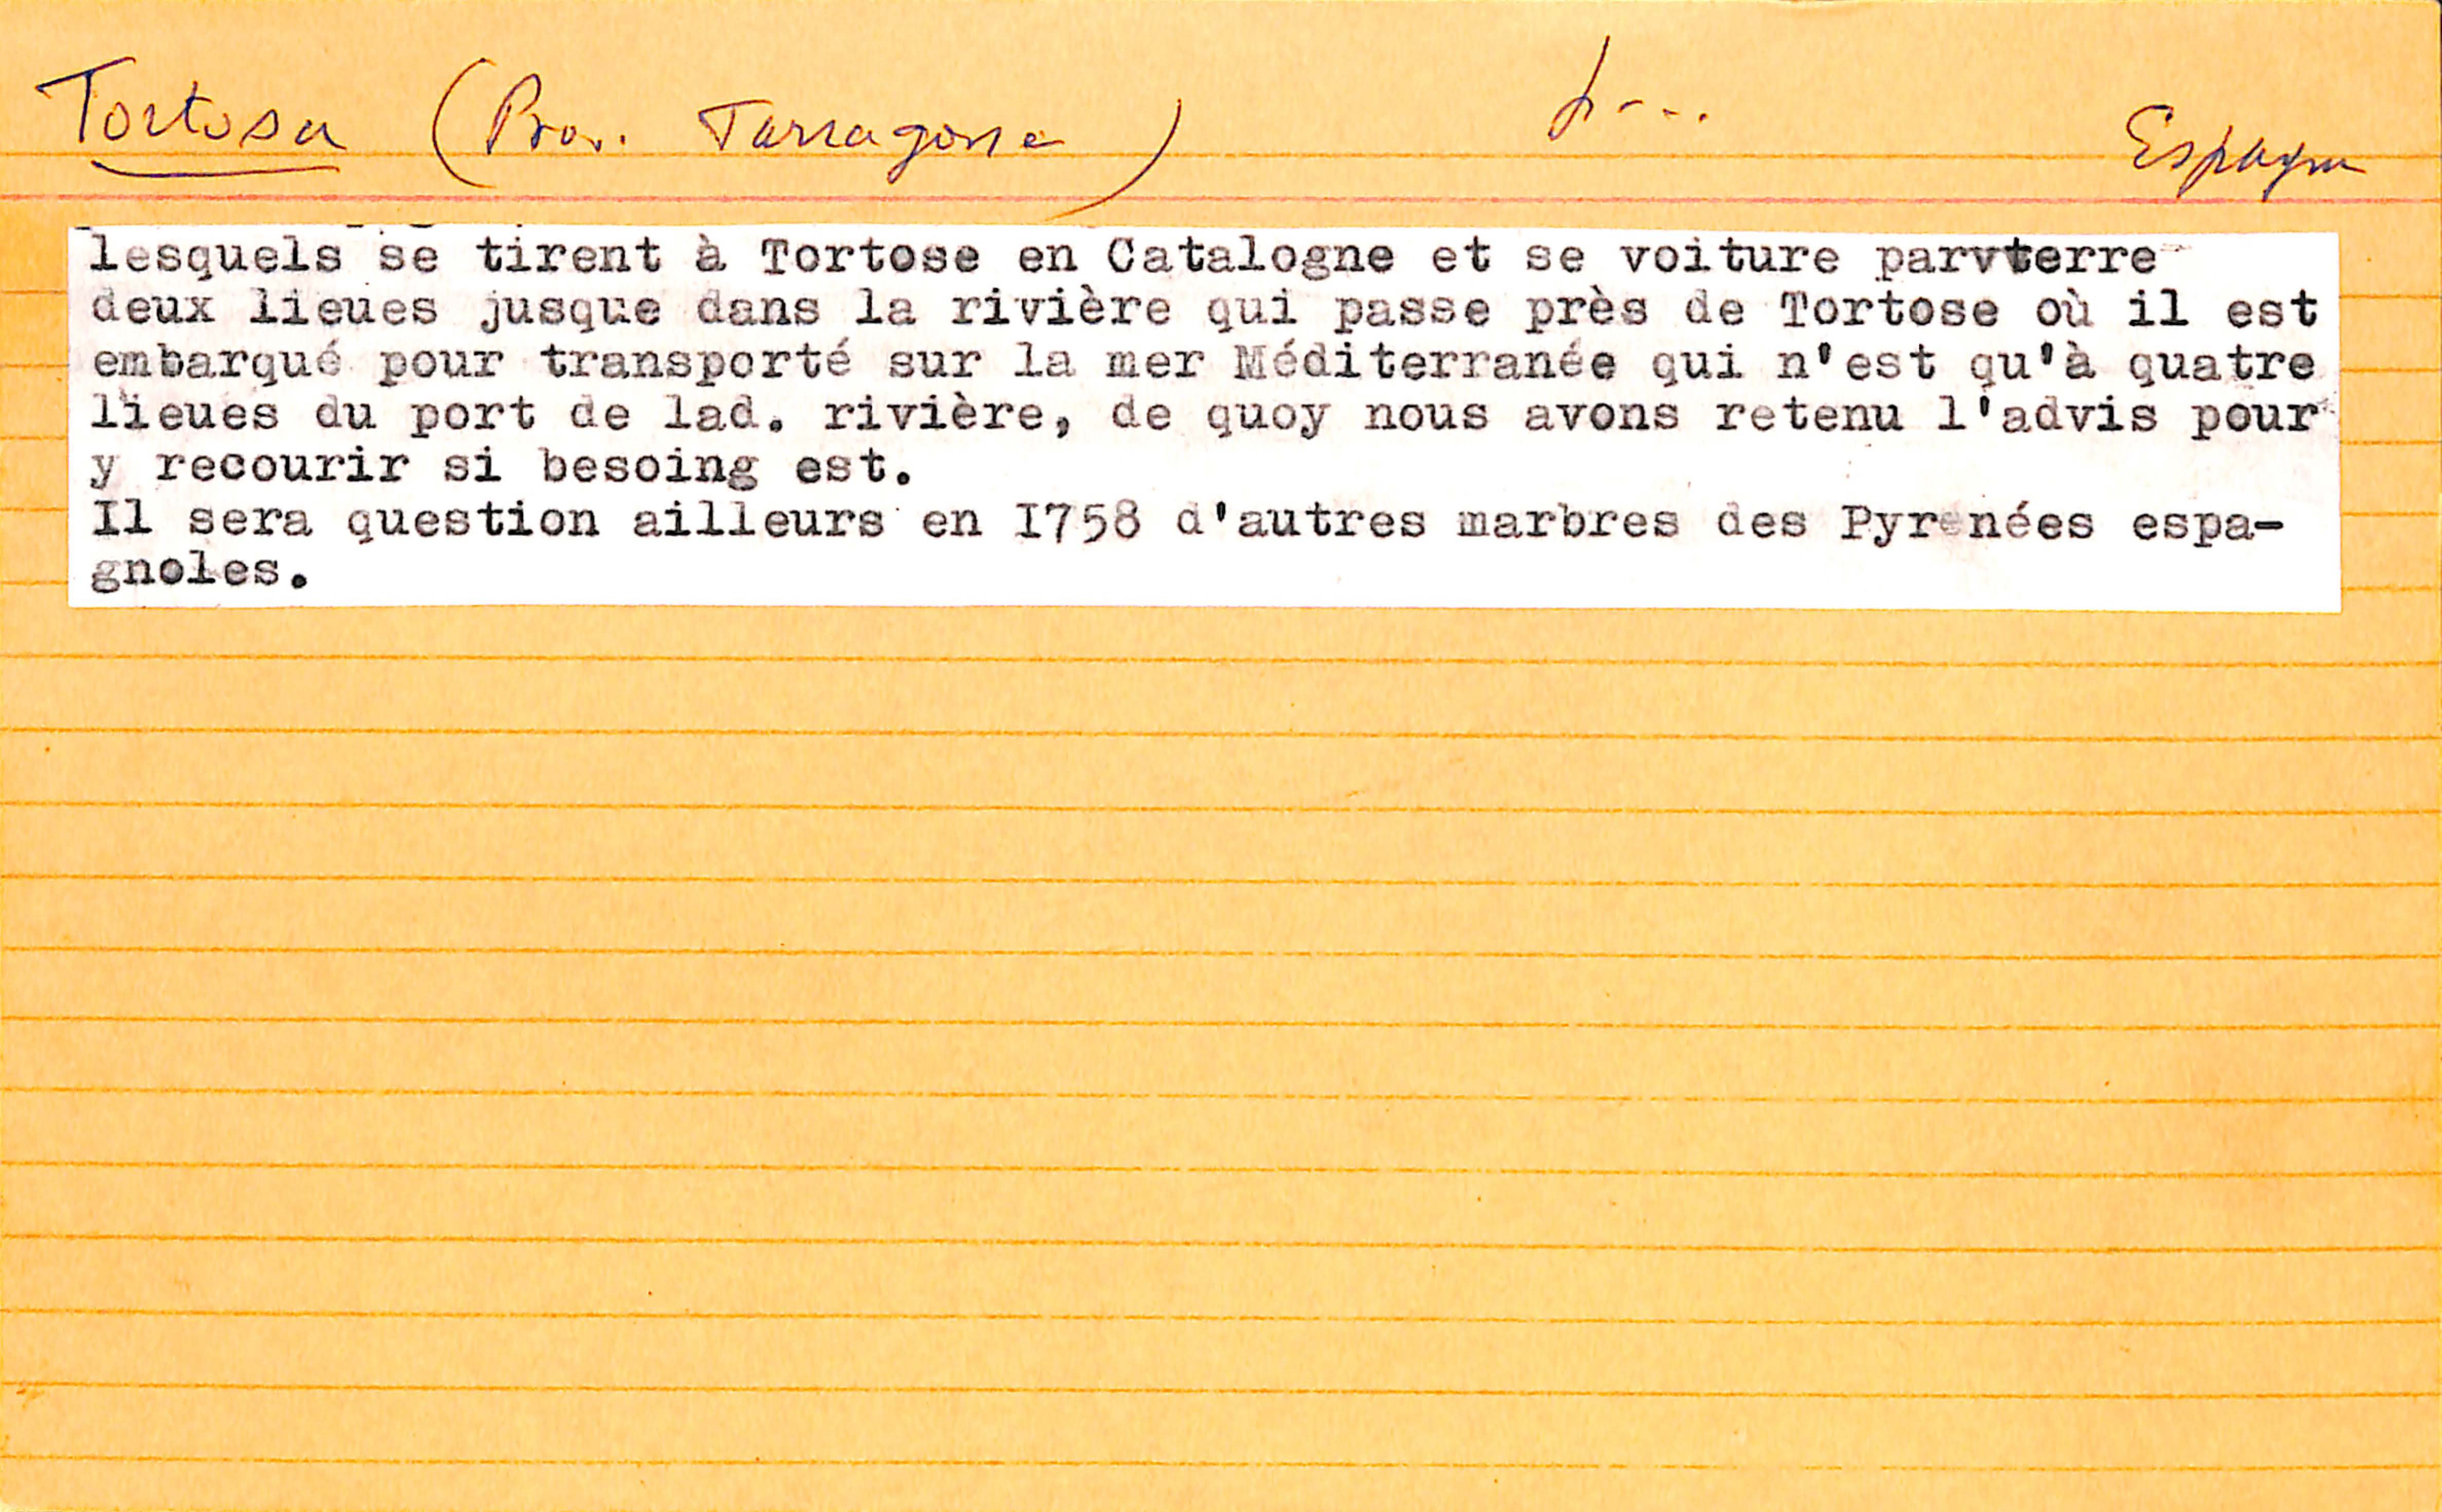 Tortosa (Prov. Tarragone) p... Espagne
lesquels se tirent à Tortose en Catalogne et se voiture parvterre
deux lieues jusque dans la rivière qui passe près de Tortose où il est
embarqué pour transporté sur la mer Méditerranée qui n'est qu'à quatre
lieues du port de lad. rivière, de quoy nous avons retenu l'advis pour
y recourir si besoing est.
Il sera question ailleurs en I758 d'autres marbres des Pyrenées espa-
gnoles.